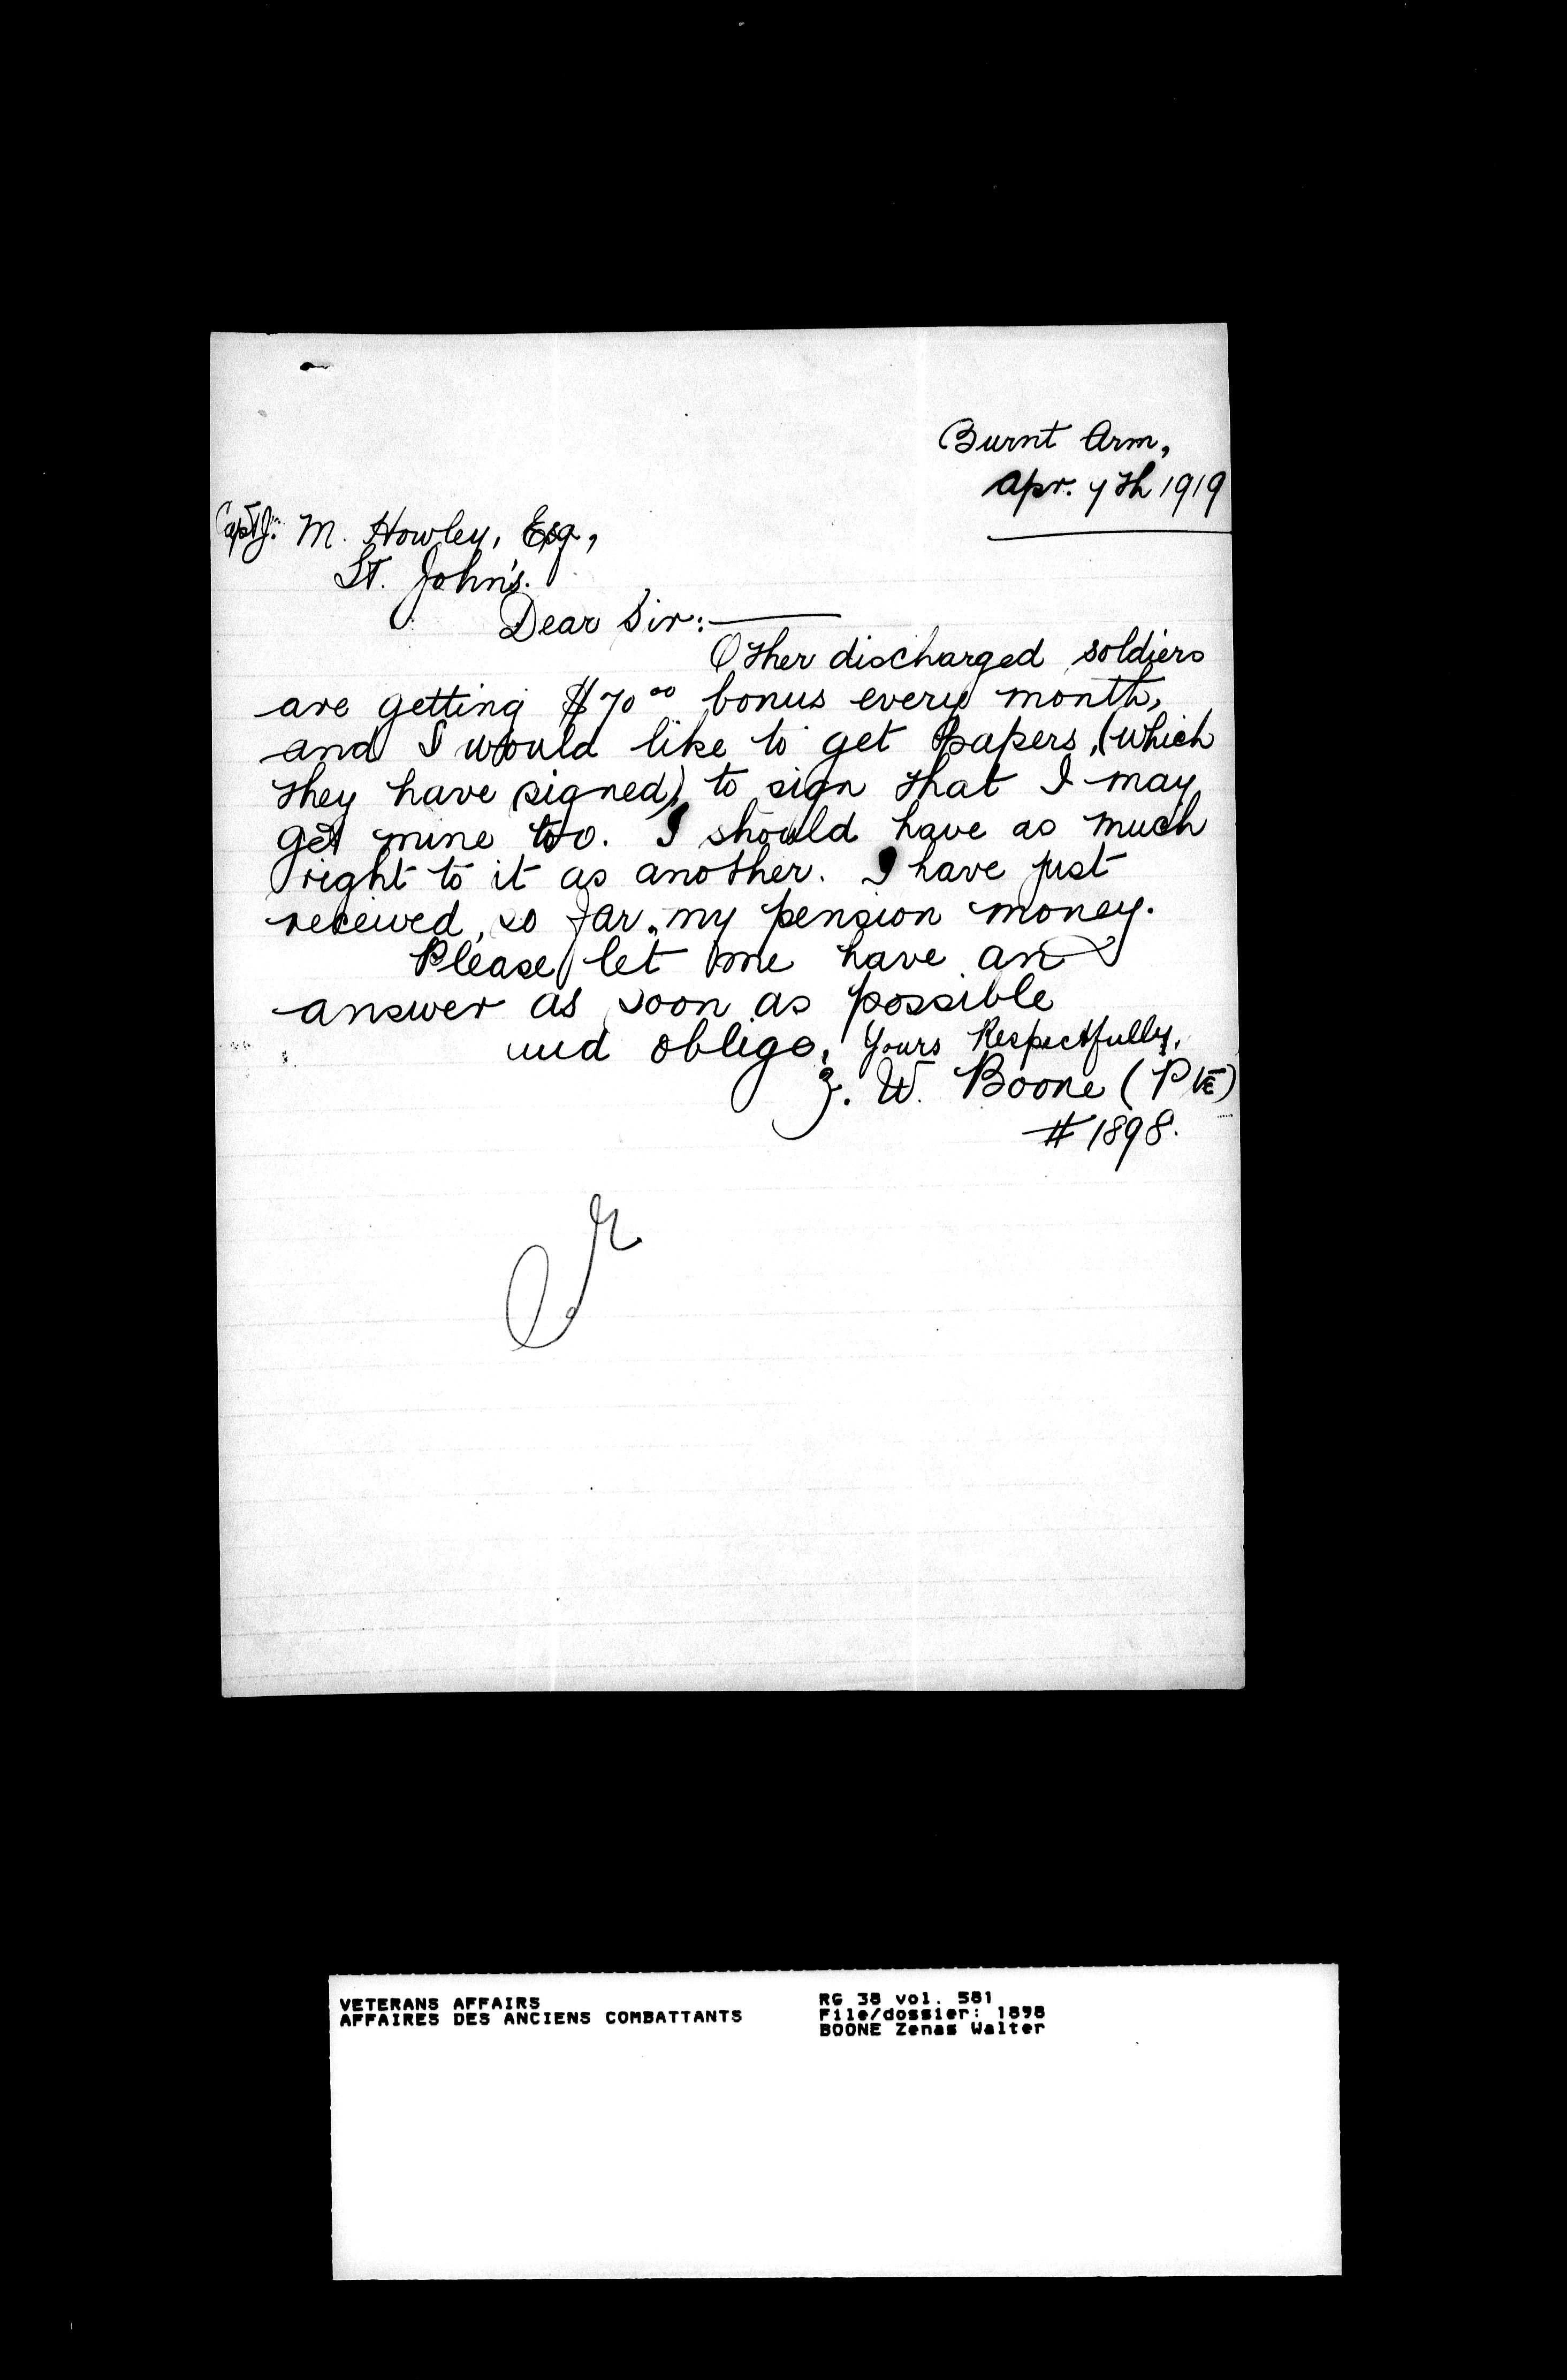 Burnt Arm,
Apr. 7th 1919
Capt. J. M. Howley, Esq.,
St. John's.
Dear Sir:—
Other discharged soldiers
are getting $70.00 bonus every month,
and I would like to get papers, (which
they have signed), to sign that I may
get mine too. I should have as much
right to it as another. I have just
received, so far, my pension money.
Please let me have an
answer as soon as possible
and oblige, Yours Respectfully,
Z. W. Boone (Pte)
#1898.
VETERANS AFFAIRS
AFFAIRES DES ANCIENS COMBATTANTS
RG 38 vol. 581
File/dossier: 1898
BOONE Zenas Walter